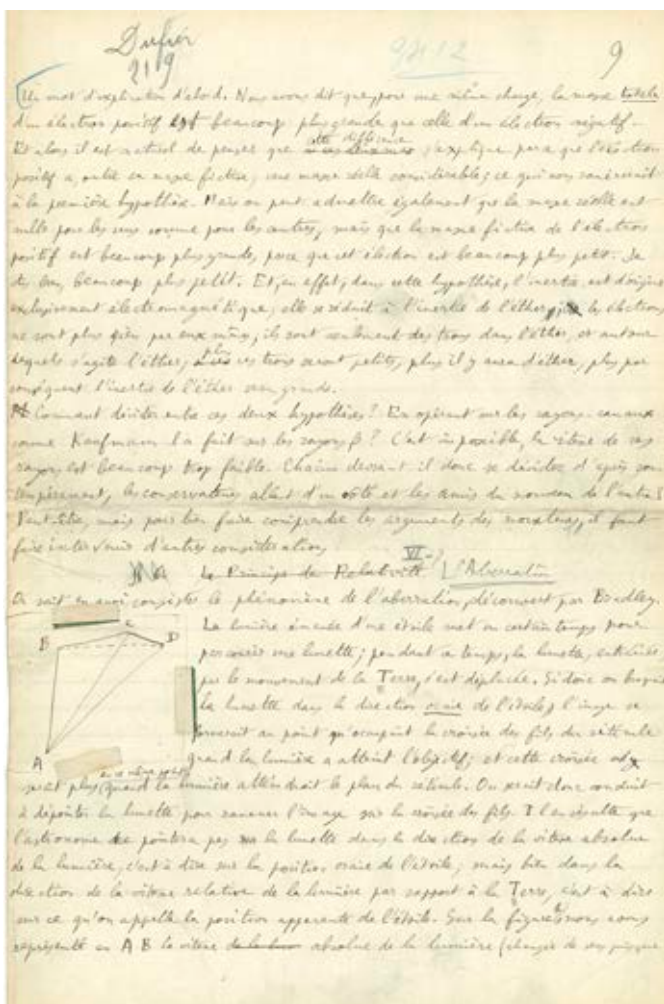 Dufier
2119
9
Un mot d'explication d'abord. Nous avons dit que, pour une même charge, la masse totale
d'un électron positif est beaucoup plus grande que celle d'un électron négatif.
Et alors il est naturel de penser que cette différence s'explique parce que l'électron
positif a, outre sa masse fictive, une masse réelle considérable; ce qui nous ramènerait
à la première hypothèse. Mais on peut admettre également que la masse réelle est
nulle pour les uns comme pour les autres, mais que la masse fictive de l'électron
positif est beaucoup plus grande, parce que cet électron est beaucoup plus petit. Je
dis bien, beaucoup plus petit. Et, en effet, dans cette hypothèse, l'inertie est d'origine
exclusivement électromagnétique, elle se réduit à l'inertie de l'éther; les électrons
ne sont plus rien par eux mêmes; ils sont seulement des trous dans l'éther, et autour
desquels s'agite l'éther; plus ces trous seront petits, plus il y aura d'éther, plus par
conséquent l'inertie de l'éther sera grande.
Comment décider entre ces deux hypothèses? En opérant sur les rayons-canaux
comme Kaufmann l'a fait sur les rayons β? C'est impossible; la vitesse de ces
rayons est beaucoup trop faible. Chacun devrait-il donc se décider d'après son
tempérament, les conservateurs allant d'un côté et les amis du nouveau de l'autre?
Peut-être, mais pour bien faire comprendre les arguments des novateurs, il faut
faire intervenir d'autres considérations
VI Le Principe de Relativité L'Aberration
On sait en quoi consiste le phénomène de l'aberration, découvert par Bradley.
La lumière émanée d'une étoile met un certain temps pour
parcourir une lunette; pendant ce temps, la lunette, entraînée
par le mouvement de la Terre, s'est déplacée. Si donc on braquait
la lunette dans la direction vraie de l'étoile, l'image se
trouverait au point qu'occupait la croisée des fils du réticule
quand la lumière a atteint l'objectif; et cette croisée ne
serait plus en ce même point quand la lumière atteindrait le plan du réticule. On serait donc conduit
à dépointer la lunette pour ramener l'image sur la croisée des fils. Il en résulte que
l'astronome ne pointera pas la lunette dans la direction de la vitesse absolue
de la lumière, c'est à dire sur la position vraie de l'étoile, mais bien dans la
direction de la vitesse relative de la lumière par rapport à la Terre, c'est à dire
sur ce qu'on appelle la position apparente de l'étoile. Sur la figure nous avons
représenté en A B la vitesse absolue de la lumière (changée de sens puisque
B
C
D
A